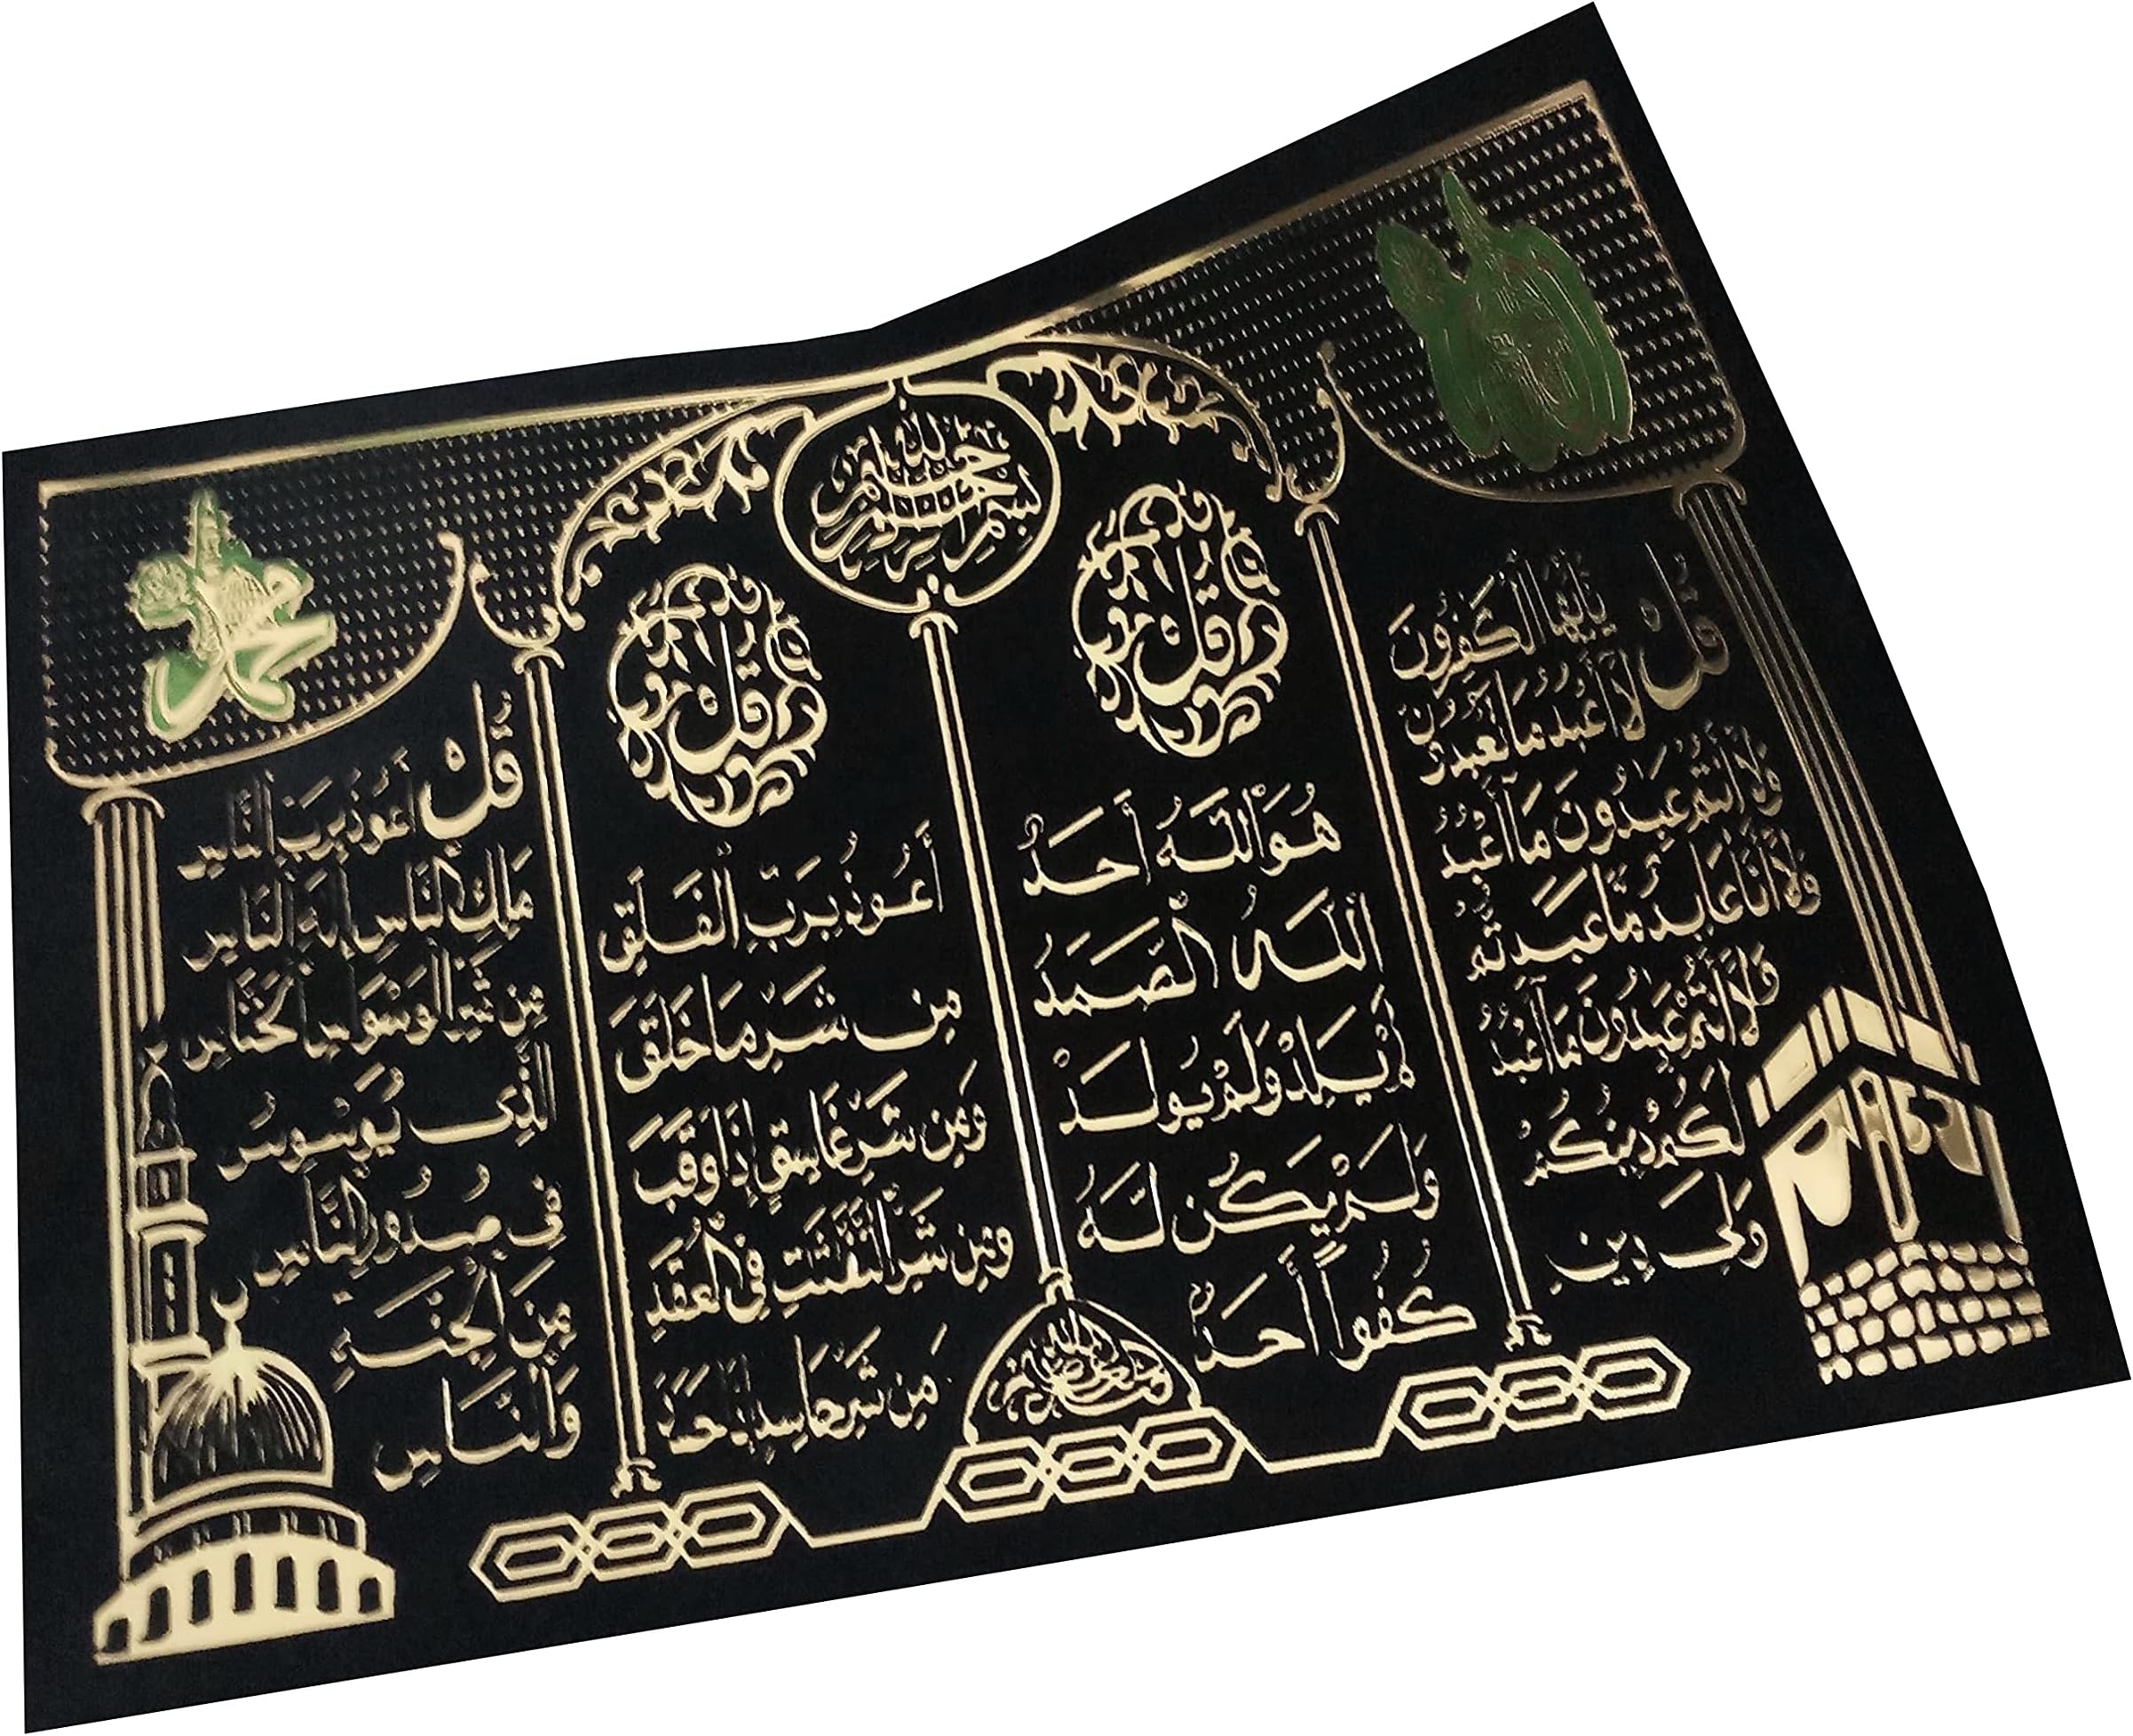 بسم الله الرحمن الرحيم
محمد
قُلْ يٰأَيُّهَا الْكٰفِرُونَ
لَا أَعْبُدُ مَا تَعْبُدُونَ
وَلَا أَنتُمْ عٰبِدُونَ مَا أَعْبُدُ
وَلَا أَنَا عَابِدٌ مَّا عَبَدتُّمْ
وَلَا أَنتُمْ عٰبِدُونَ مَا أَعْبُدُ
لَكُمْ دِينُكُمْ
وَلِيَ دِينِ
قل
هُوَ اللَّهُ أَحَدٌ
اللَّهُ الصَّمَدُ
لَمْ يَلِدْ وَلَمْ يُولَدْ
وَلَمْ يَكُن لَّهُ
كُفُوًا أَحَدٌ
قل
أَعُوذُ بِرَبِّ الْفَلَقِ
مِن شَرِّ مَا خَلَقَ
وَمِن شَرِّ غَاسِقٍ إِذَا وَقَبَ
وَمِن شَرِّ النَّفّٰثٰتِ فِي الْعُقَدِ
وَمِن شَرِّ حَاسِدٍ إِذَا حَسَدَ
قُلْ أَعُوذُ بِرَبِّ النَّاسِ
مَلِكِ النَّاسِ إِلٰهِ النَّاسِ
مِن شَرِّ الْوَسْوَاسِ الْخَنَّاسِ
الَّذِي يُوَسْوِسُ
فِي صُدُورِ النَّاسِ
مِنَ الْجِنَّةِ
وَالنَّاسِ
صدق الله العظيم